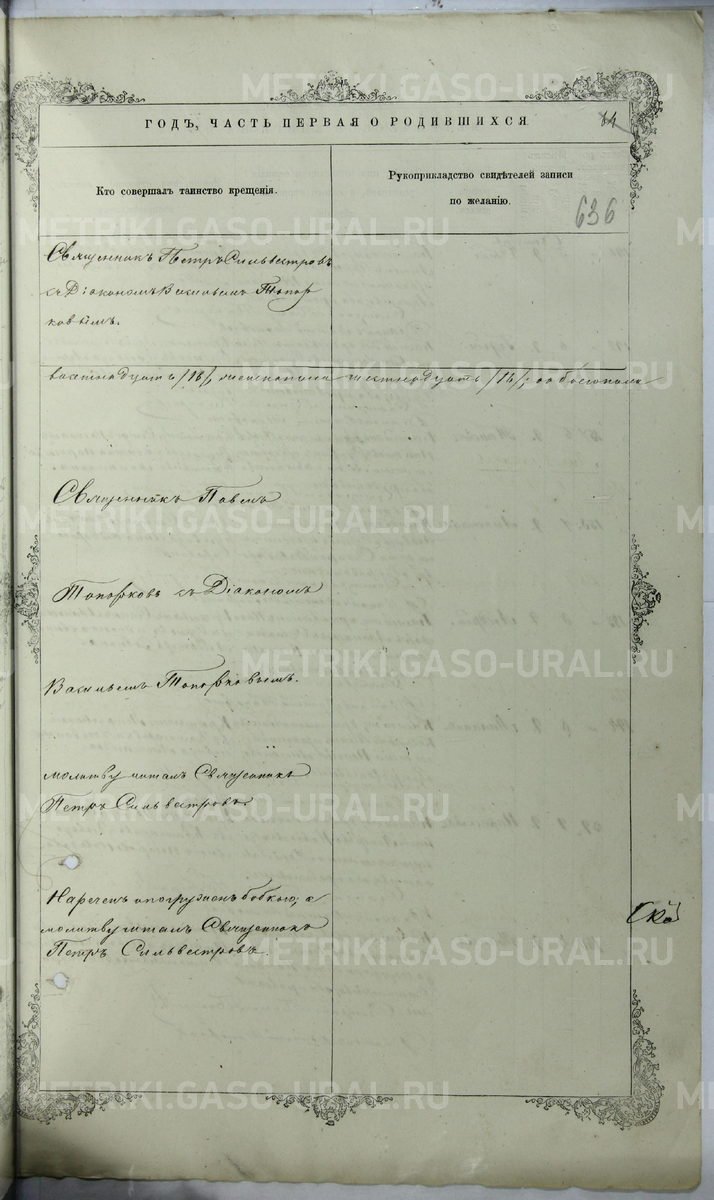 ГОДЪ, ЧАСТЬ ПЕРВАЯ О РОДИВШИХСЯ
Кто совершалъ таинство крещенія.
Рукоприкладство свидѣтелей записи
по желанію.
636
Священникъ Петръ Сильвестровъ
съ Діакономъ Васильемъ Топор
ковымъ.
/18/, женскаго пола шестнадцать /16/; обоего пола
Священникъ Павелъ
Топорковъ съ Діакономъ
Васильемъ Топорковымъ.
молитву читалъ Священникъ
Петръ Сильвестровъ
Нареченъ и погруженъ бабкою, а
молитву читалъ Священникъ
Петръ Сильвестровъ.
METRIKI.GASO-URAL.RU